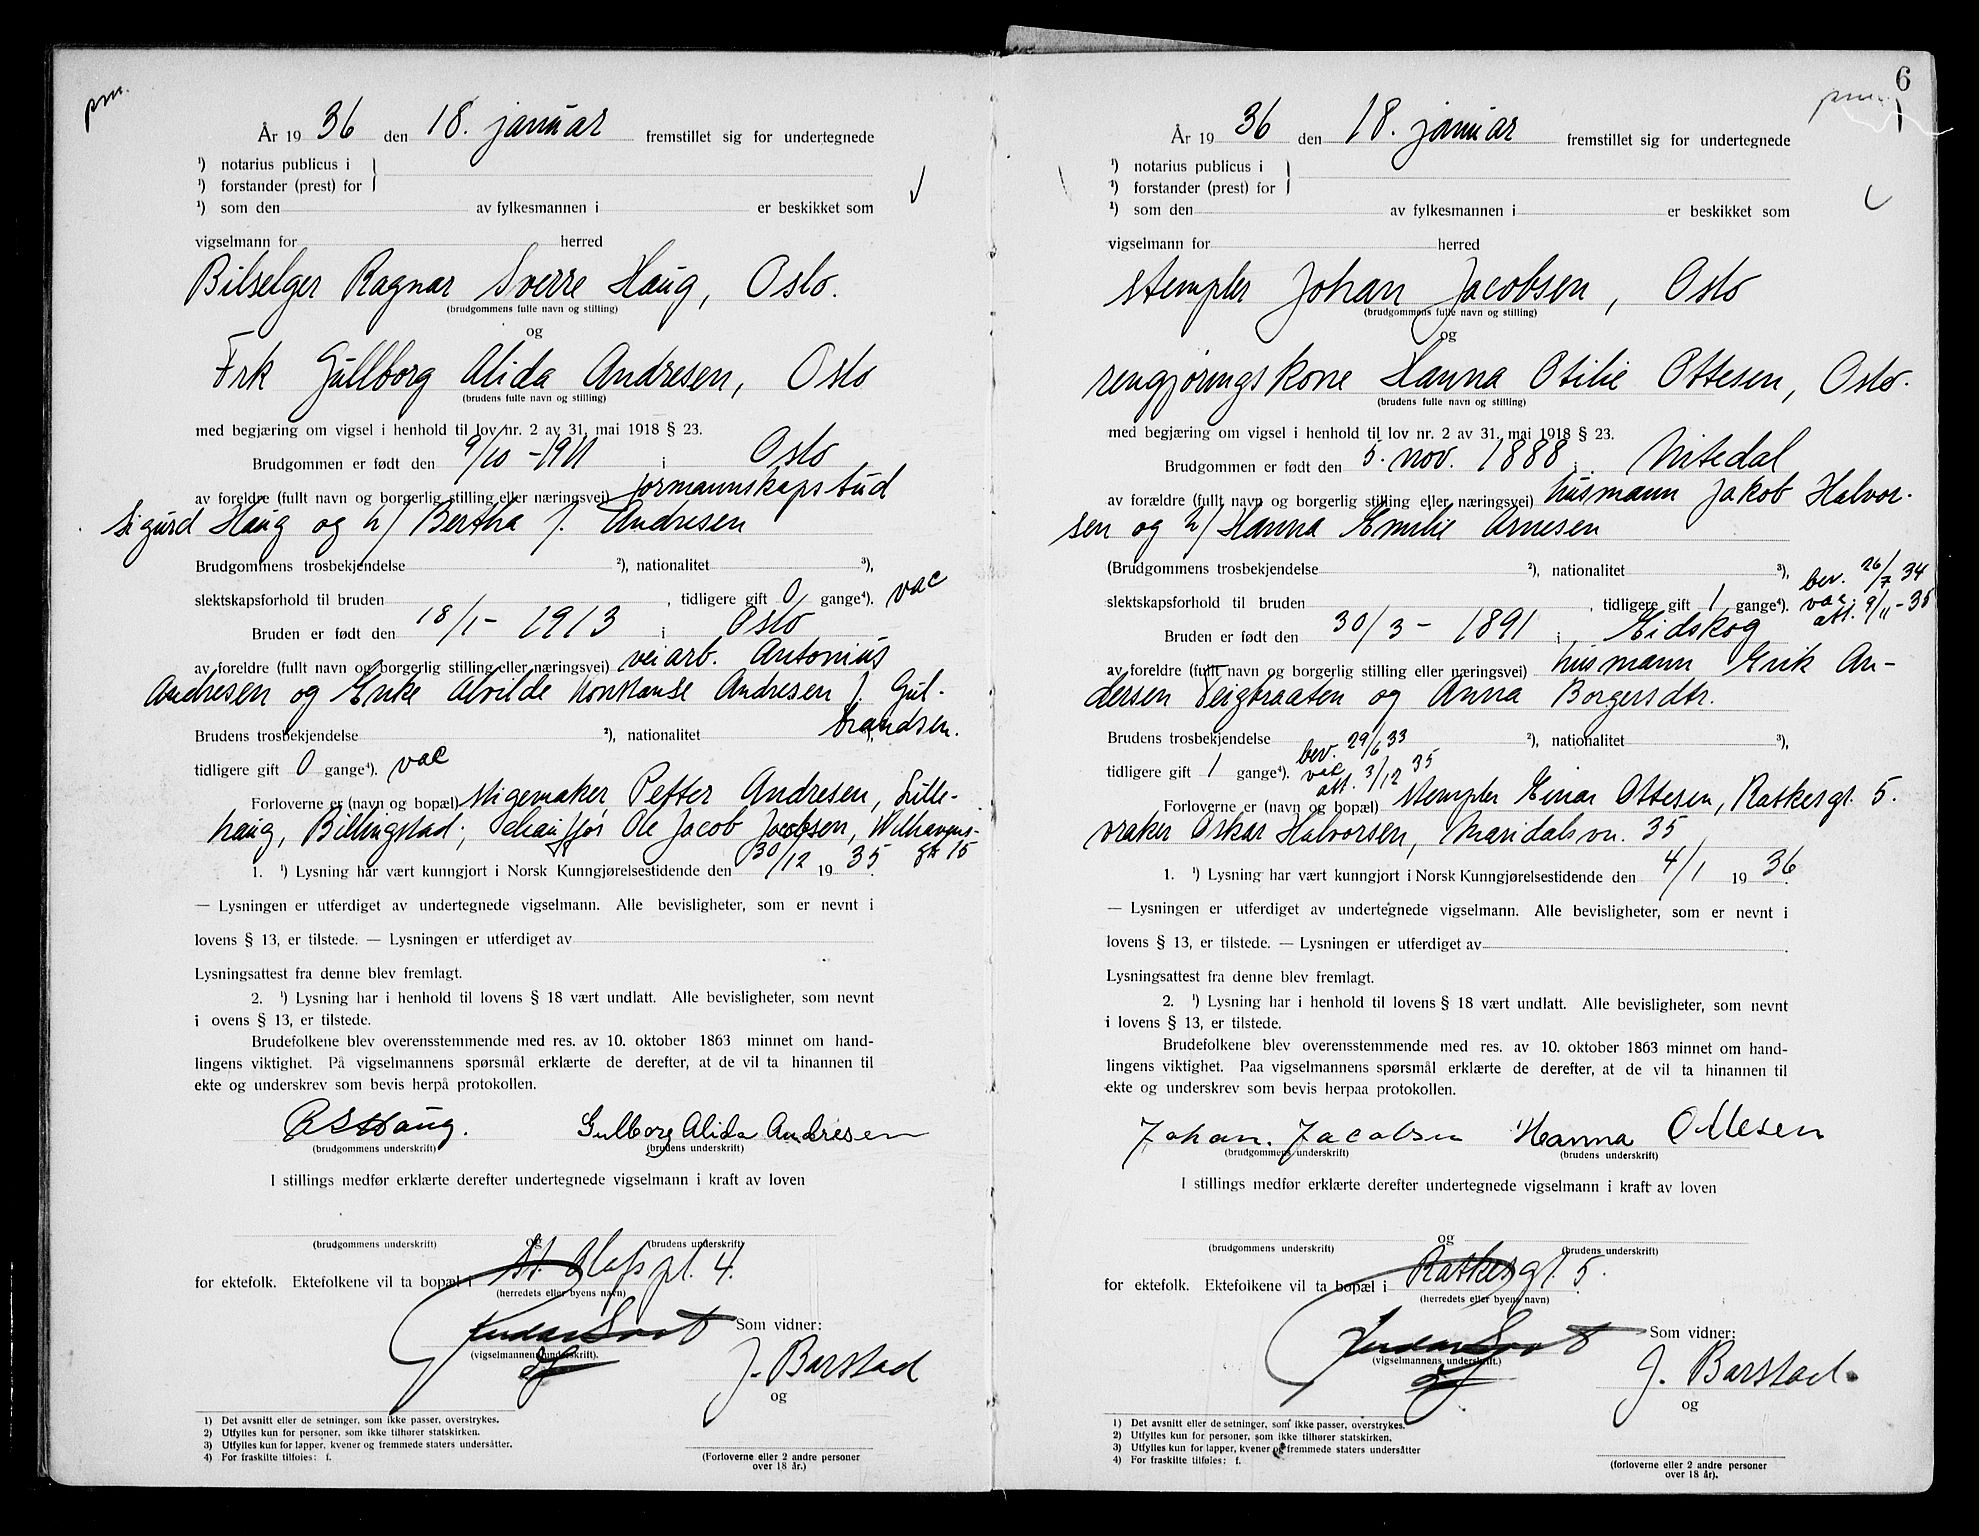 pm.
År 19 36 den 18. januar fremstillet sig for undertegnede
¹) notarius publicus i
¹) forstander (prest) for
¹) som den av fylkesmannen i er beskikket som
vigselmann for herred
Bilselger Ragnar Sverre Haug, Oslo.
(brudgommens fulle navn og stilling)
og
Frk Gullborg Alida Andresen, Oslo
(brudens fulle navn og stilling)
med begjæring om vigsel i henhold til lov nr. 2 av 31. mai 1918 § 23.
Brudgommen er født den 9/10 - 1911 i Oslo
av foreldre (fullt navn og borgerlig stilling eller næringsvei) formannskapsbud
Sigurd Haug og h/ Bertha f. Andresen
Brudgommens trosbekjendelse ²), nationalitet ³),
slektskapsforhold til bruden , tidligere gift 0 gange⁴). vac
Bruden er født den 18/1 - 1913 i Oslo
av foreldre (fullt navn og borgerlig stilling eller næringsvei) veiarb. Antonius
Andresen og Enke Alvilde Konstanse Andresen f. Gul-
brandsen.
Brudens trosbekjendelse ²), nationalitet
tidligere gift 0 gange⁴). vac
Forloverne er (navn og bopæl) stigemaker Petter Andresen, Lille-
haug, Billingstad; Schaufför Ole Jacob Jacobsen, Welhavens-
gt 15
1. ¹) Lysning har vært kunngjort i Norsk Kunngjørelsestidende den 30/12 19 35.
— Lysningen er utferdiget av undertegnede vigselmann. Alle bevisligheter, som er nevnt i
lovens § 13, er tilstede. — Lysningen er utferdiget av
Lysningsattest fra denne blev fremlagt.
2. ¹) Lysning har i henhold til lovens § 18 vært undlatt. Alle bevisligheter, som nevnt
i ovens § 13, er tilstede.
Brudefolkene blev overensstemmende med res. av 10. oktober 1863 minnet om hand-
lingens viktighet. På vigselmannens spørsmål erklærte de derefter, at de vil ta hinannen til
ekte og underskrev som bevis herpå protokollen.
R S Haug. Gulborg Alida Andresen
(brudgommens underskrift) (brudens underskrift)
I stillings medfør erklærte derefter undertegnede vigselmann i kraft av loven
og
(brudgommens underskrift) (brudens underskrift)
for ektefolk. Ektefolkene vil ta bopæl i St. Olafs pl. 4.
(herredets eller byens navn)
Som vidner:
(vigselmannens underskrift).
J. Barstad
og
1) Det avsnitt eller de setninger, som ikke passer, overstrykes.
2) Utfylles kun for personer, som ikke tilhører statskirken.
3) Utfylles kun for lapper, kvener og fremmede staters undersåtter.
4) For fraskilte tilføies: f.
(Forloverne eller 2 andre personer
over 18 år.)
6
pm.
År 19 36 den 18. januar fremstillet sig for undertegnede
¹) notarius publicus i
¹) forstander (prest) for
¹) som den av fylkesmannen i er beskikket som
vigselmann for herred
stempler Johan Jacobsen, Oslo
(brudgommens fulle navn og stilling)
og
rengjøringskone Hanna Otilie Ottesen, Oslo.
(brudens fulle navn og stilling)
med begjæring om vigsel i henhold til lov nr. 2 av 31. mai 1918 § 23.
Brudgommen er født den 5. nov. 1888 i Nitedal
av forældre (fullt navn og borgerlig stilling eller næringsvei) husmann Jakob Halvor-
sen og h/ Hanna Emilie Arnesen
(Brudgommens trosbekjendelse ²), nationalitet ³), bev. 26/7 34
slektskapsforhold til bruden , tidligere gift 1 gange⁴). vac. att. 9/11 - 35
Bruden er født den 30/3 - 1891 i Eidskog
av forældre (fullt navn og borgerlig stilling eller næringsvei) husmann Erik An-
dersen Teigbraaten og Anna Borgersdtr.
Brudens trosbekjendelse ²), nationalitet ³),
bev. 29/6 33
tidligere gift 1 gange⁴). vac att. 3/12 35
Forloverne er (navn og bopæl) stempler Einar Ottesen, Ratkesgt. 5.
vraker Oskar Halvorsen, Maridalsvn. 35
1. ¹) Lysning har vært kunngjort i Norsk Kunngjørelsestidende den 4/1 19 36.
— Lysningen er utferdiget av undertegnede vigselmann. Alle bevisligheter, som er nevnt i
lovens § 13, er tilstede. — Lysningen er utferdiget av
Lysningsattest fra denne blev fremlagt.
2. ¹) Lysning har i henhold til lovens § 18 vært undlatt. Alle bevisligheter, som nevnt
i lovens § 13, er tilstede.
Brudefolkene blev overensstemmende med res. av 10. oktober 1863 minnet om hand-
lingens viktighet. Paa vigselmannens spørsmål erklærte de derefter, at de vil ta hinannen til
ekte og underskrev som bevis herpaa protokollen.
Johan. Jacobsen Hanna Ottesen
(brudgommens underskrift) (brudens underskrift)
I stillings medfør erklærte derefter undertegnede vigselmann i kraft av loven
og
(brudgommens underskrift) (brudens underskrift)
for ektefolk. Ektefolkene vil ta bopæl i Ratkesgt. 5.
(herredets eller byens navn)
Som vidner:
(vigselmannens underskrift.)
J. Barstad
og
1) Det avsnitt eller de setninger, som ikke passer, overstrykes.
2) Utfylles kun for personer, som ikke tilhører statskirken.
3) Utfylles kun for lapper, kvener og fremmede staters undersåtter
4) For fraskilte tilføies: f.
(forloverne eller 2 andre personer
over 18 år).